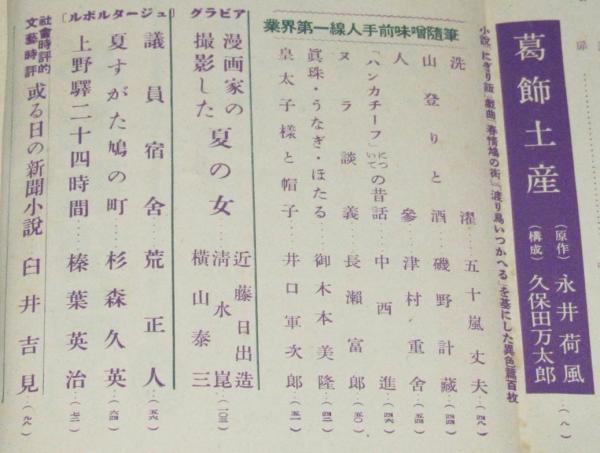 葛飾土産
(原作) 永井荷風
(構成) 久保田万太郎 (八)
小説「にぎり飯」戯曲「春情鳩の街」「渡り鳥いつかへる」を基にした異色篇百枚
業界第一線人手前味噌随筆
洗濯‥五十嵐丈夫‥(四八)
山登りと酒‥磯野計蔵‥(四四)
人参‥津村重舎‥(五四)
「ハンカチーフ」についての昔話‥中西進‥(四六)
ヌラ談義‥長瀬富郎‥(五〇)
眞珠・うなぎ・ほたる‥御木本美隆‥(四二)
皇太子様と帽子‥井口軍次郎‥(五一)
グラビア
漫画家の撮影した夏の女‥近藤日出造 清水崑 横山泰三‥(一〇三)
〔ルポルタージュ〕
議員宿舎‥荒正人‥(五六)
夏すがた鳩の町‥杉森久英‥(六四)
上野驛二十四時間‥榛葉英治‥(七二)
社會時評的文藝時評 或る日の新聞小説 臼井吉見‥(九八)